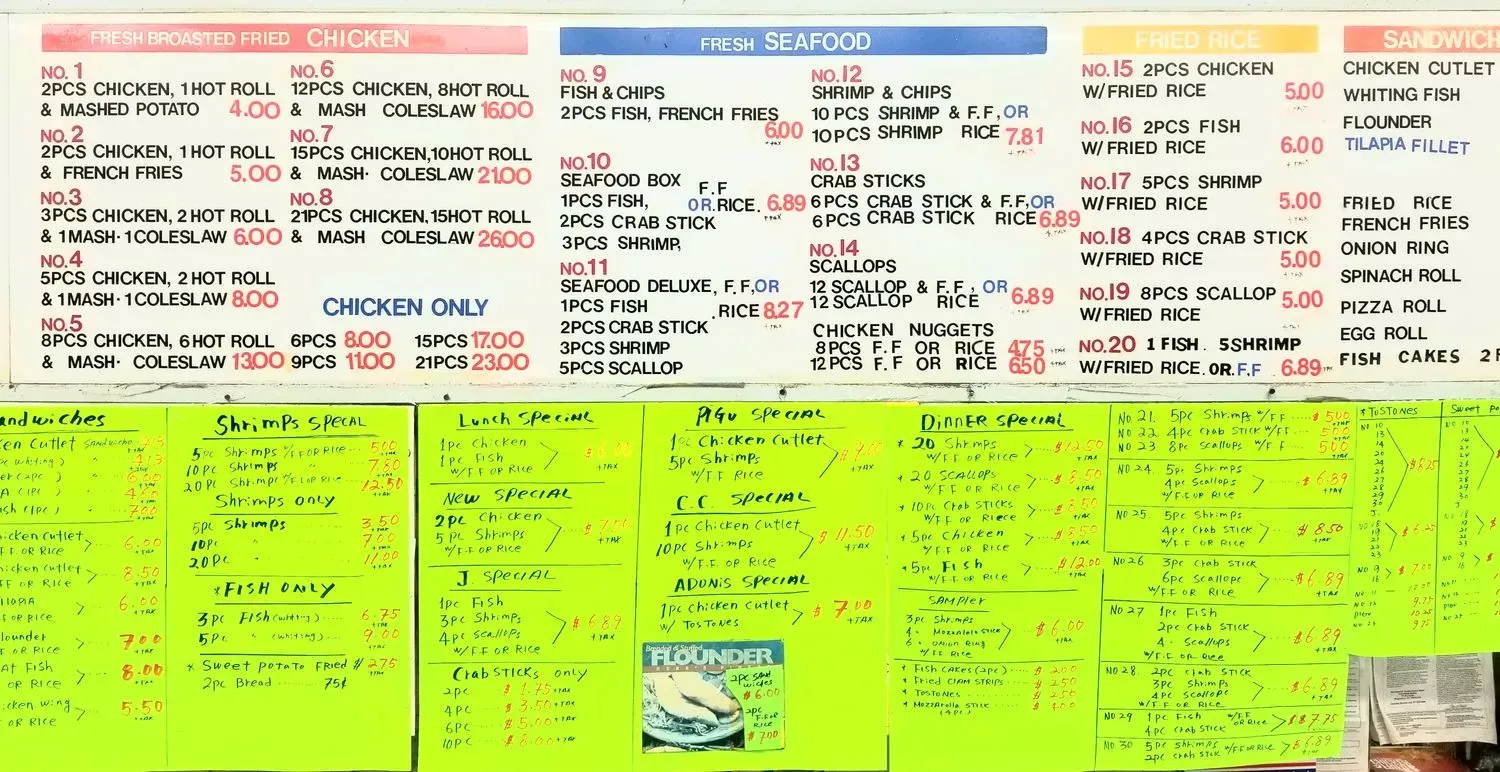 FRESH BROASTED FRIED CHICKEN
NO. 1
2PCS CHICKEN, 1 HOT ROLL
& MASHED POTATO 4.00
NO. 2
2PCS CHICKEN, 1 HOT ROLL
& FRENCH FRIES 5.00
NO. 3
3PCS CHICKEN, 2 HOT ROLL
& 1 MASH· 1 COLESLAW 6.00
NO. 4
5PCS CHICKEN, 2 HOT ROLL
& 1 MASH· 1 COLESLAW 8.00
NO. 5
8PCS CHICKEN, 6 HOT ROLL
& MASH· COLESLAW 13.00
NO. 6
12PCS CHICKEN, 8HOT ROLL
& MASH COLESLAW 16.00
NO. 7
15PCS CHICKEN,10HOT ROLL
& MASH· COLESLAW 21.00
NO. 8
21PCS CHICKEN,15HOT ROLL
& MASH COLESLAW 26.00
CHICKEN ONLY
6PCS 8.00 15PCS 17.00
9PCS 11.00 21PCS 23.00
FRESH SEAFOOD
NO. 9
FISH & CHIPS
2PCS FISH, FRENCH FRIES
6.00
+TAX
NO.10
SEAFOOD BOX F.F
1PCS FISH, OR.RICE. 6.89
+TAX
2PCS CRAB STICK
3PCS SHRIMP,
NO.11
SEAFOOD DELUXE, F.F,OR
1PCS FISH .RICE 8.27
+TAX
2PCS CRAB STICK
3PCS SHRIMP
5PCS SCALLOP
NO.12
SHRIMP & CHIPS
10 PCS SHRIMP & F.F,OR
10PCS SHRIMP RICE 7.81
NO.13
CRAB STICKS
6 PCS CRAB STICK & F.F,OR
6 PCS CRAB STICK RICE 6.89
NO.14
SCALLOPS
12 SCALLOP & F.F, OR
12 SCALLOP RICE 6.89
CHICKEN NUGGETS
8PCS F.F OR RICE 4.75
12PCS F.F OR RICE 6.50
FRIED RICE
NO.15 2PCS CHICKEN
W/FRIED RICE 5.00
NO.16 2PCS FISH
W/FRIED RICE 6.00
NO.17 5PCS SHRIMP
W/FRIED RICE 5.00
NO.18 4PCS CRAB STICK
W/FRIED RICE 5.00
NO.19 8PCS SCALLOP 5.00
W/FRIED RICE
NO.20 1 FISH. 5 SHRIMP
W/FRIED RICE. OR.F.F 6.89
SANDWICH
CHICKEN CUTLET
WHITING FISH
FLOUNDER
TILAPIA FILLET
FRIED RICE
FRENCH FRIES
ONION RING
SPINACH ROLL
PIZZA ROLL
EGG ROLL
FISH CAKES 2
andwiches
ken Cutlet Sandwich
hicken Cutlet
F.F. OR Rice 6.00
+TAX
hicken cutlet
FF OR Rice 8.50
+TAX
LOPIA
OR Rice 6.00
+TAX
lounder
OR Rice 7.00
+TAX
At Fish
OR Rice 8.00
+TAX
icken wing
OR Rice 5.50
+TAX
Shrimps SPECAL
5pc Shrimps W/FF OR RICE 5.00
10pc Shrimps " 7.80
20pc Shrimps W/F.F OR RICE 12.50
Shrimps ONLY
5pc Shrimps 3.50
10pc " 7.00
20pc " 11.00
*FISH ONLY
3pc FISH (whiting) 6.75
+TAX
5pc " (whiting) 9.00
+TAX
* Sweet potato Fried $ 2.75
2pc Bread 75¢
Lunch Special
1pc Chicken
1pc Fish
W/FF OR RICE
+TAX
New SPECIAL
2pc Chicken
5pc Shrimps $ 7.50
W/F.F OR RICE +TAX
J. SPECIAL
1pc Fish
3pc Shrimps $ 6.89
4pc Scallops +TAX
W/F.F OR RICE
Crab STICKS only
2pc $ 1.75 +TAX
4pc $ 3.50 +TAX
6pc $ 5.00 +TAX
10pc $ 8.00 +TAX
PIGU SPECIAL
1pc Chicken Cutlet
5pc Shrimps $ 9.00
W/F.F RICE +TAX
C.C. SPECIAL
1pc Chicken Cutlet
10pc Shrimps $ 11.50
W/F.F OR RICE +TAX
ADONIS SPECIAL
1pc Chicken Cutlet $ 7.00
W/ TOSTONES +TAX
Breaded & Stuffed
FLOUNDER
2pc Sand
wiches
$6.00
2pc
F.F OR
RICE
$ 7.00
DINNER SPECIAL
* 20 Shrimps $12.50
W/F.F OR RICE +TAX
* 20 SCALLOPS $ 8.50
W/F.F OR RICE +TAX
* 10pc Crab Sticks $ 8.50
W/F.F OR Riece +TAX
* 5pc Chicken $ 8.50
W/F.F OR RICE +TAX
* 5pc Fish $12.00
W/FF OR RICE +TAX
SAMPler
3pc Shrimps
4 - Mozzarola stick $ 6.00
6 - Onion Ring +TAX
W/F.F RICE
* Fish CAKES (2pc) $ 2.00
* Fried CLAM STRIPS $ 2.50
* TOSTONES $ 2.50
* Mozzarolla Stick $ 4.00
(4pc)
NO. 21. 5pc Shrimps W/FF $ 5.00
NO 22. 4pc Crab STICK W/FF 5.00
NO 23 8pc Scallops W/F F 5.00
NO 24. 5pc Shrimps
4pc Scallops $ 6.89
W/F.F OR RICE +TAX
NO 25. 5pc Shrimps
4pc Crab STICK $ 8.50
W/FF OR RICE +TAX
NO 26 3pc Crab STICK
6pc Scallope $6.89
W/F.F OR RICE +TAX
NO 27 1pc Fish
2pc Crab STICK $6.89
4 - Scallops +TAX
W/F.F OR RICE
NO 28. 2pc Crab STICK
3pc Shrimps $6.89
4pc Scallops +TAX
W/FF OR RICE
NO 29 1pc Fish W/F.F OR RICE $7.75
4pc Crab STICK +TAX
NO 30 5pc Shrimps W/F.F OR RICE $6.89
2pc Crab STICK +TAX
* TOSTONES
NO 10
13
14
20
24
26
27
28
29
30
$8.25
NO 18
19
21
22
23
$ 6.25
NO 9
16
$ 7.00
Sweet Po